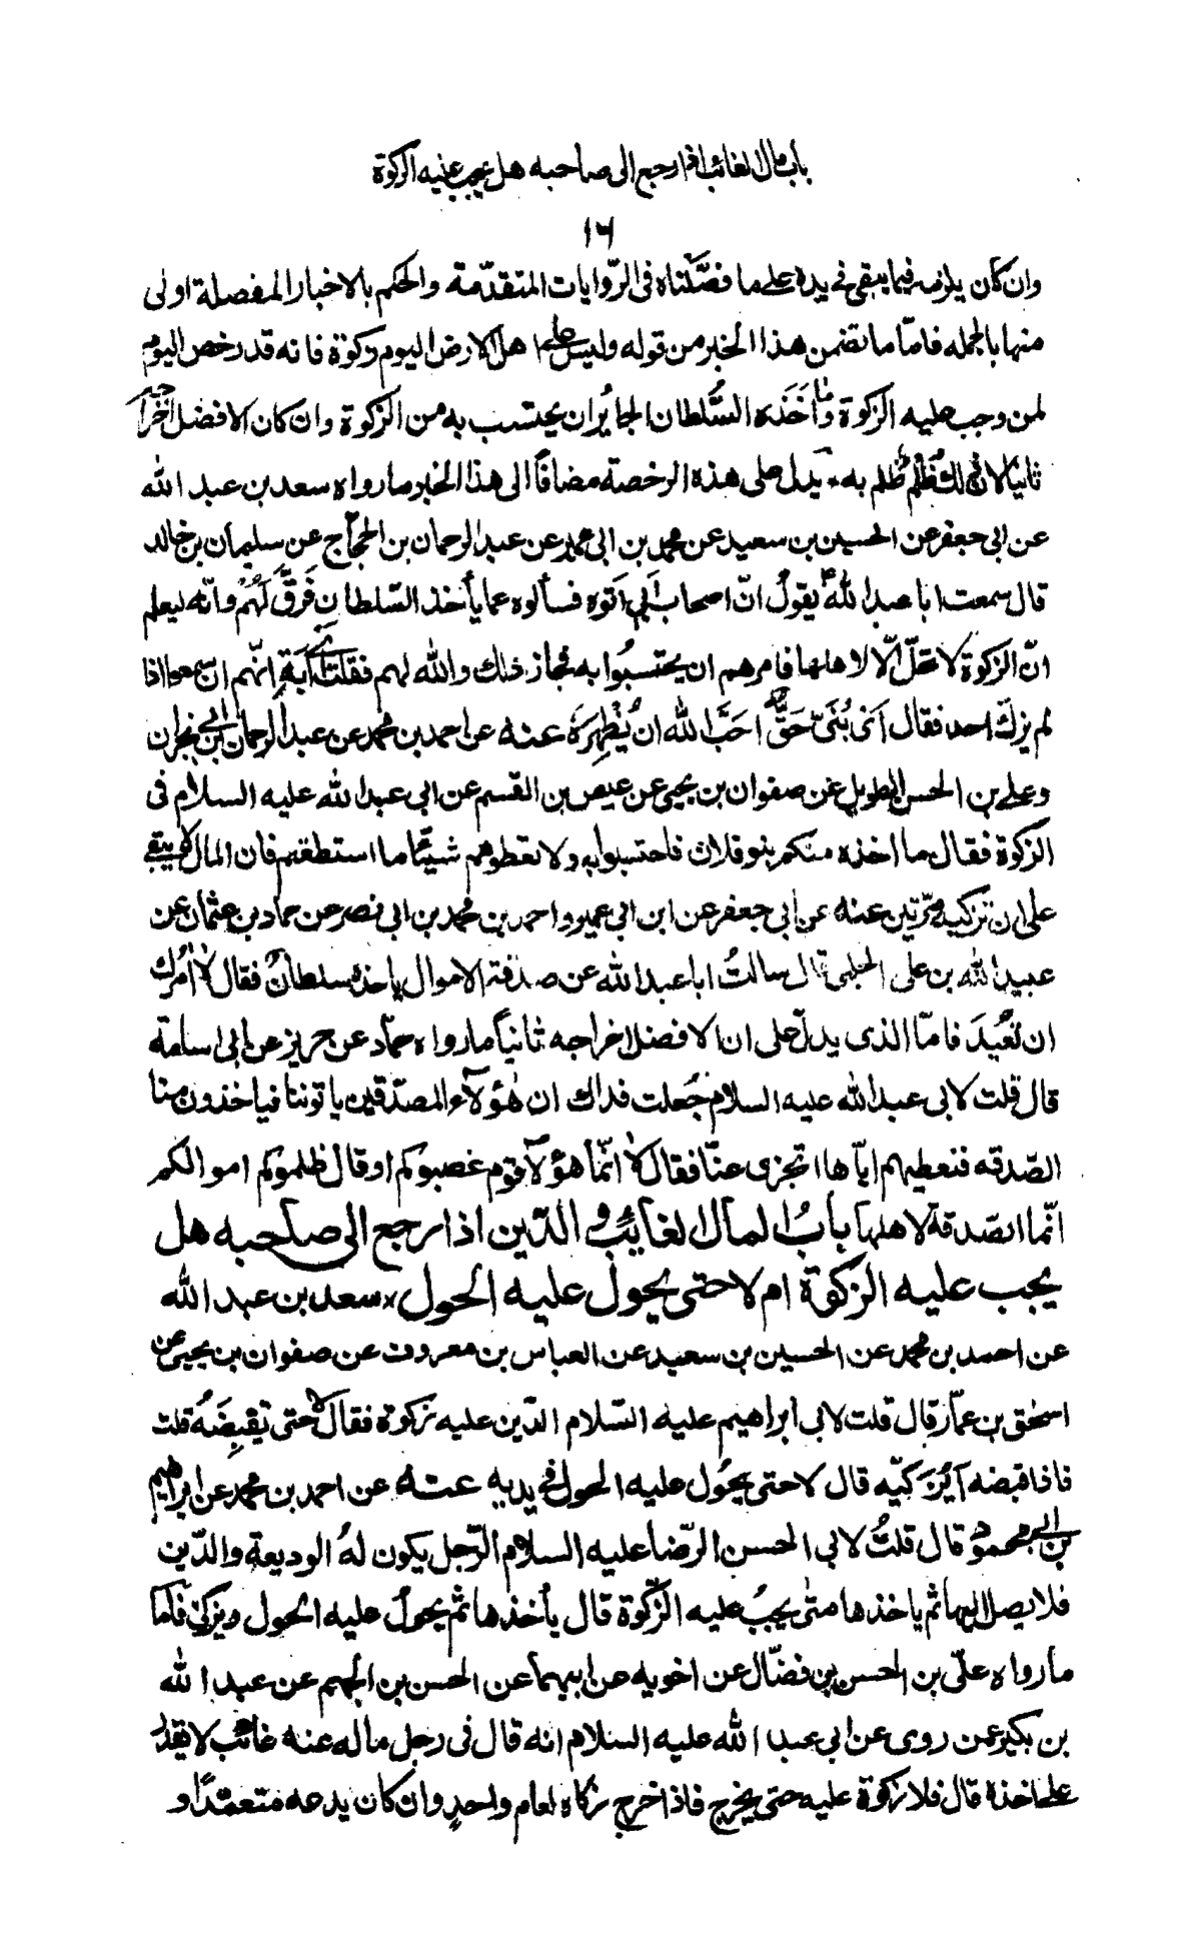 باب مال الغائب اذا رجع الى صاحبه هل يجب عليه الزكوة
١٦
وان كان يلزمه فيما يبقى فى يده على ما فصّلناه فى الرّوايات المتقدّمة والحكم بالاخبار المفصلة اولى
منها بالجمله فامّا ما تضمن هذا الخبر من قوله وليس على اهل الارض اليوم زكوة فانه قد رخص اليوم
لمن وجب عليه الزكوة واَخَذَه السُّلطان الجائر ان يحتسب به من الزكوة وان كان الافضل اخراجه
ثانيا لان ذلك ظُلم ظُلم به يدل على هذه الرخصة مضافًا الى هذا الخبر ما رواه سعد بن عبد الله
عن ابى جعفر عن الحسين بن سعيد عن محمد بن ابى عمير عن عبد الرحمان بن الحجّاج عن سليمان بن خالد
قال سمعت ابا عبد الله ع يقولُ انّ اصحاب اَبى اَتوه فسألوه عما يأخذ السّلطان فَرَقَّ لَهُمْ وانّه ليعلم
انّ الزكوة لا تحلّ الّا لاهلها فامرهم ان يحتسبُوا به فجاز ذلك والله لهم فقلت يا اَبَةِ انّهم ان سمعوا اذا
لم يزكّ احد فقال اَى بُنَىّ حَقٌّ احَبَّ الله انْ يُظْهِرَهُ عنه عن احمد بن محمد عن عبد الرحمان بن ابى نجران
وعلى بن الحسن الطويل عن صفوان بن يحيى عن عيص بن القسم عن ابى عبد الله عليه السلام فى
الزكوة فقال ما اخذه منكم بنو فلان فاحتسبوا به ولا تعطوهم شيئًا ما استطعتم فان المال لا يبقى
على ان تزكيه مرّتين عنه عن ابى جعفر عن ابن ابى عمير واحمد بن محمد بن ابى نصر عن حماد بن عثمان عن
عبيد الله بن على الحلبى قال سالتُ ابا عبد الله عن صدقة الاموال ياخذه سلطانٌ فقال لا آمُرك
ان تُعيدَ فامّا الذى يدلّ على ان الافضل اخراجه ثانياً ما رواه حمّاد عن حريز عن ابى اسامة
قال قلت لابى عبد الله عليه السلام جُعلت فداك ان هٰؤلآء المصدّقين ياتوننا فياخذون منا
الصّدقه فنعطيهم ايّاها اتجزى عنّا فقال لا انّما هؤلآ قوم غصبوكم او قال ظلموكم اموالكم
انّما الصّدقة لاهلها بابُ المال الغائب والدّين اذا رجع الى صاحبه هل
يجب عليه الزكوة ام لا حتى يحول عليه الحول سعد بن عبد الله
عن احمد بن محمد عن الحسين بن سعيد عن العباس بن معروف عن صفوان بن يحيى عن
اسحٰق بن عمّار قال قلت لابى ابراهيم عليه السّلام الدّين عليه زكوة فقال لا حتى يَقبِضَهُ قلت
فاذا قبضه اَيُزَكيّه قال لا حتى يحُول عليه الحول فى يديه عنه عن احمد بن محمد عن ابراهيم
بن ابى محمود قال قلتُ لابى الحسن الرّضا عليه السلام الرّجل يكون لهُ الوديعة والدّين
فلا يصل اليهما ثم ياخذها متى يجبُ عليه الزّكوة قال يأخذها ثم يحولُ عليه الحول ويزكّى فامّا
ما رواه علىّ بن الحسن بن فضّال عن اخويه عن ابيهما عن الحسن بن الجهم عن عبد الله
بن بكير عمن روى عن ابى عبد الله عليه السلام انه قال فى رجل ماله عنه غائب لا يقدر
على اخذه قال فلا زكوة عليه حتى يخرج فاذا خرج زكاه لعام واحدٍ وان كان يدعه متعمّدًا و